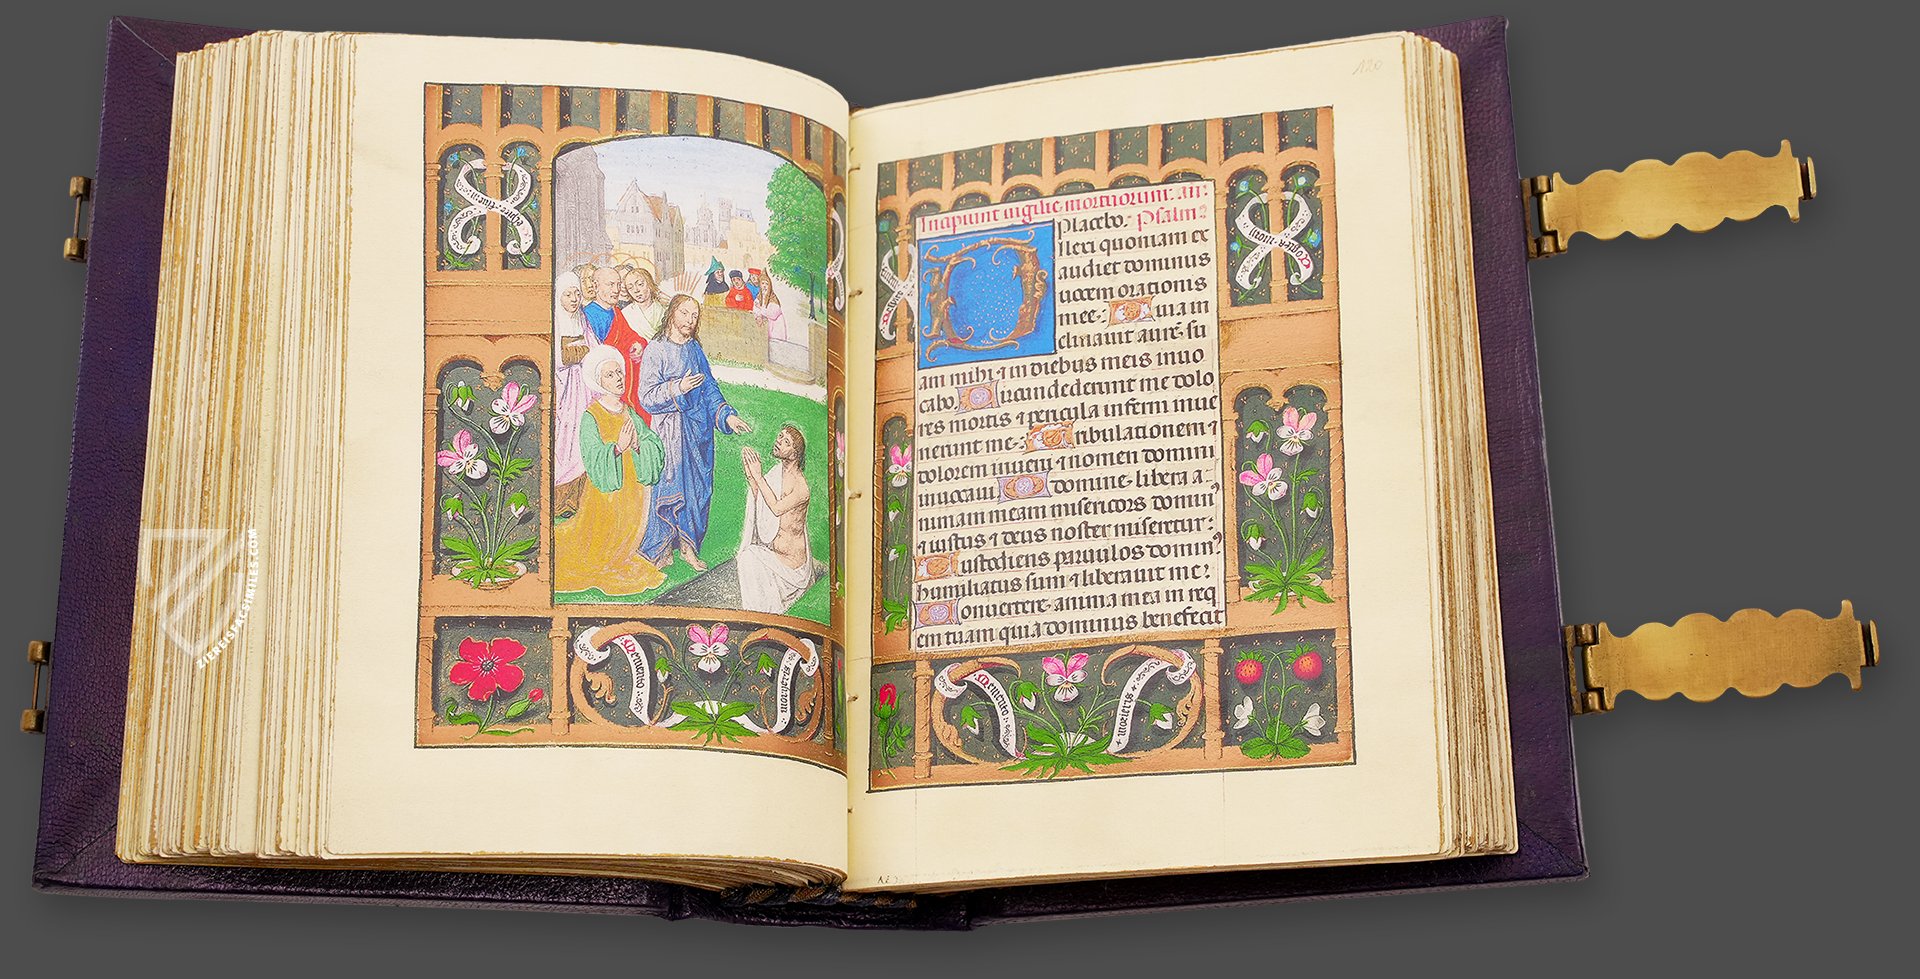 Memento
morieris
120
Incipiunt vigilie mortuorum. an.
Placebo. Psalm
Ilexi quoniam ex
audiet dominus
vocem orationis
mee. Quia in
clinavit aurē su
am mihi ⁊ in diebus meis invo
cabo. Circumdederunt me dolo
res mortis ⁊ pericula inferni inve
nerunt me. Tribulationem ⁊
dolorem inveni ⁊ nomen domini
invocavi. O domine libera a
nimam meam misericors domin⁹
⁊ iustus ⁊ deus noster miseretur
Custodiens parvulos domin⁹
humiliatus sum ⁊ liberavit me
Convertere anima mea in req
em tuam quia dominus benefecit
Memento
morieris
ZIEREISFACSIMILES.COM